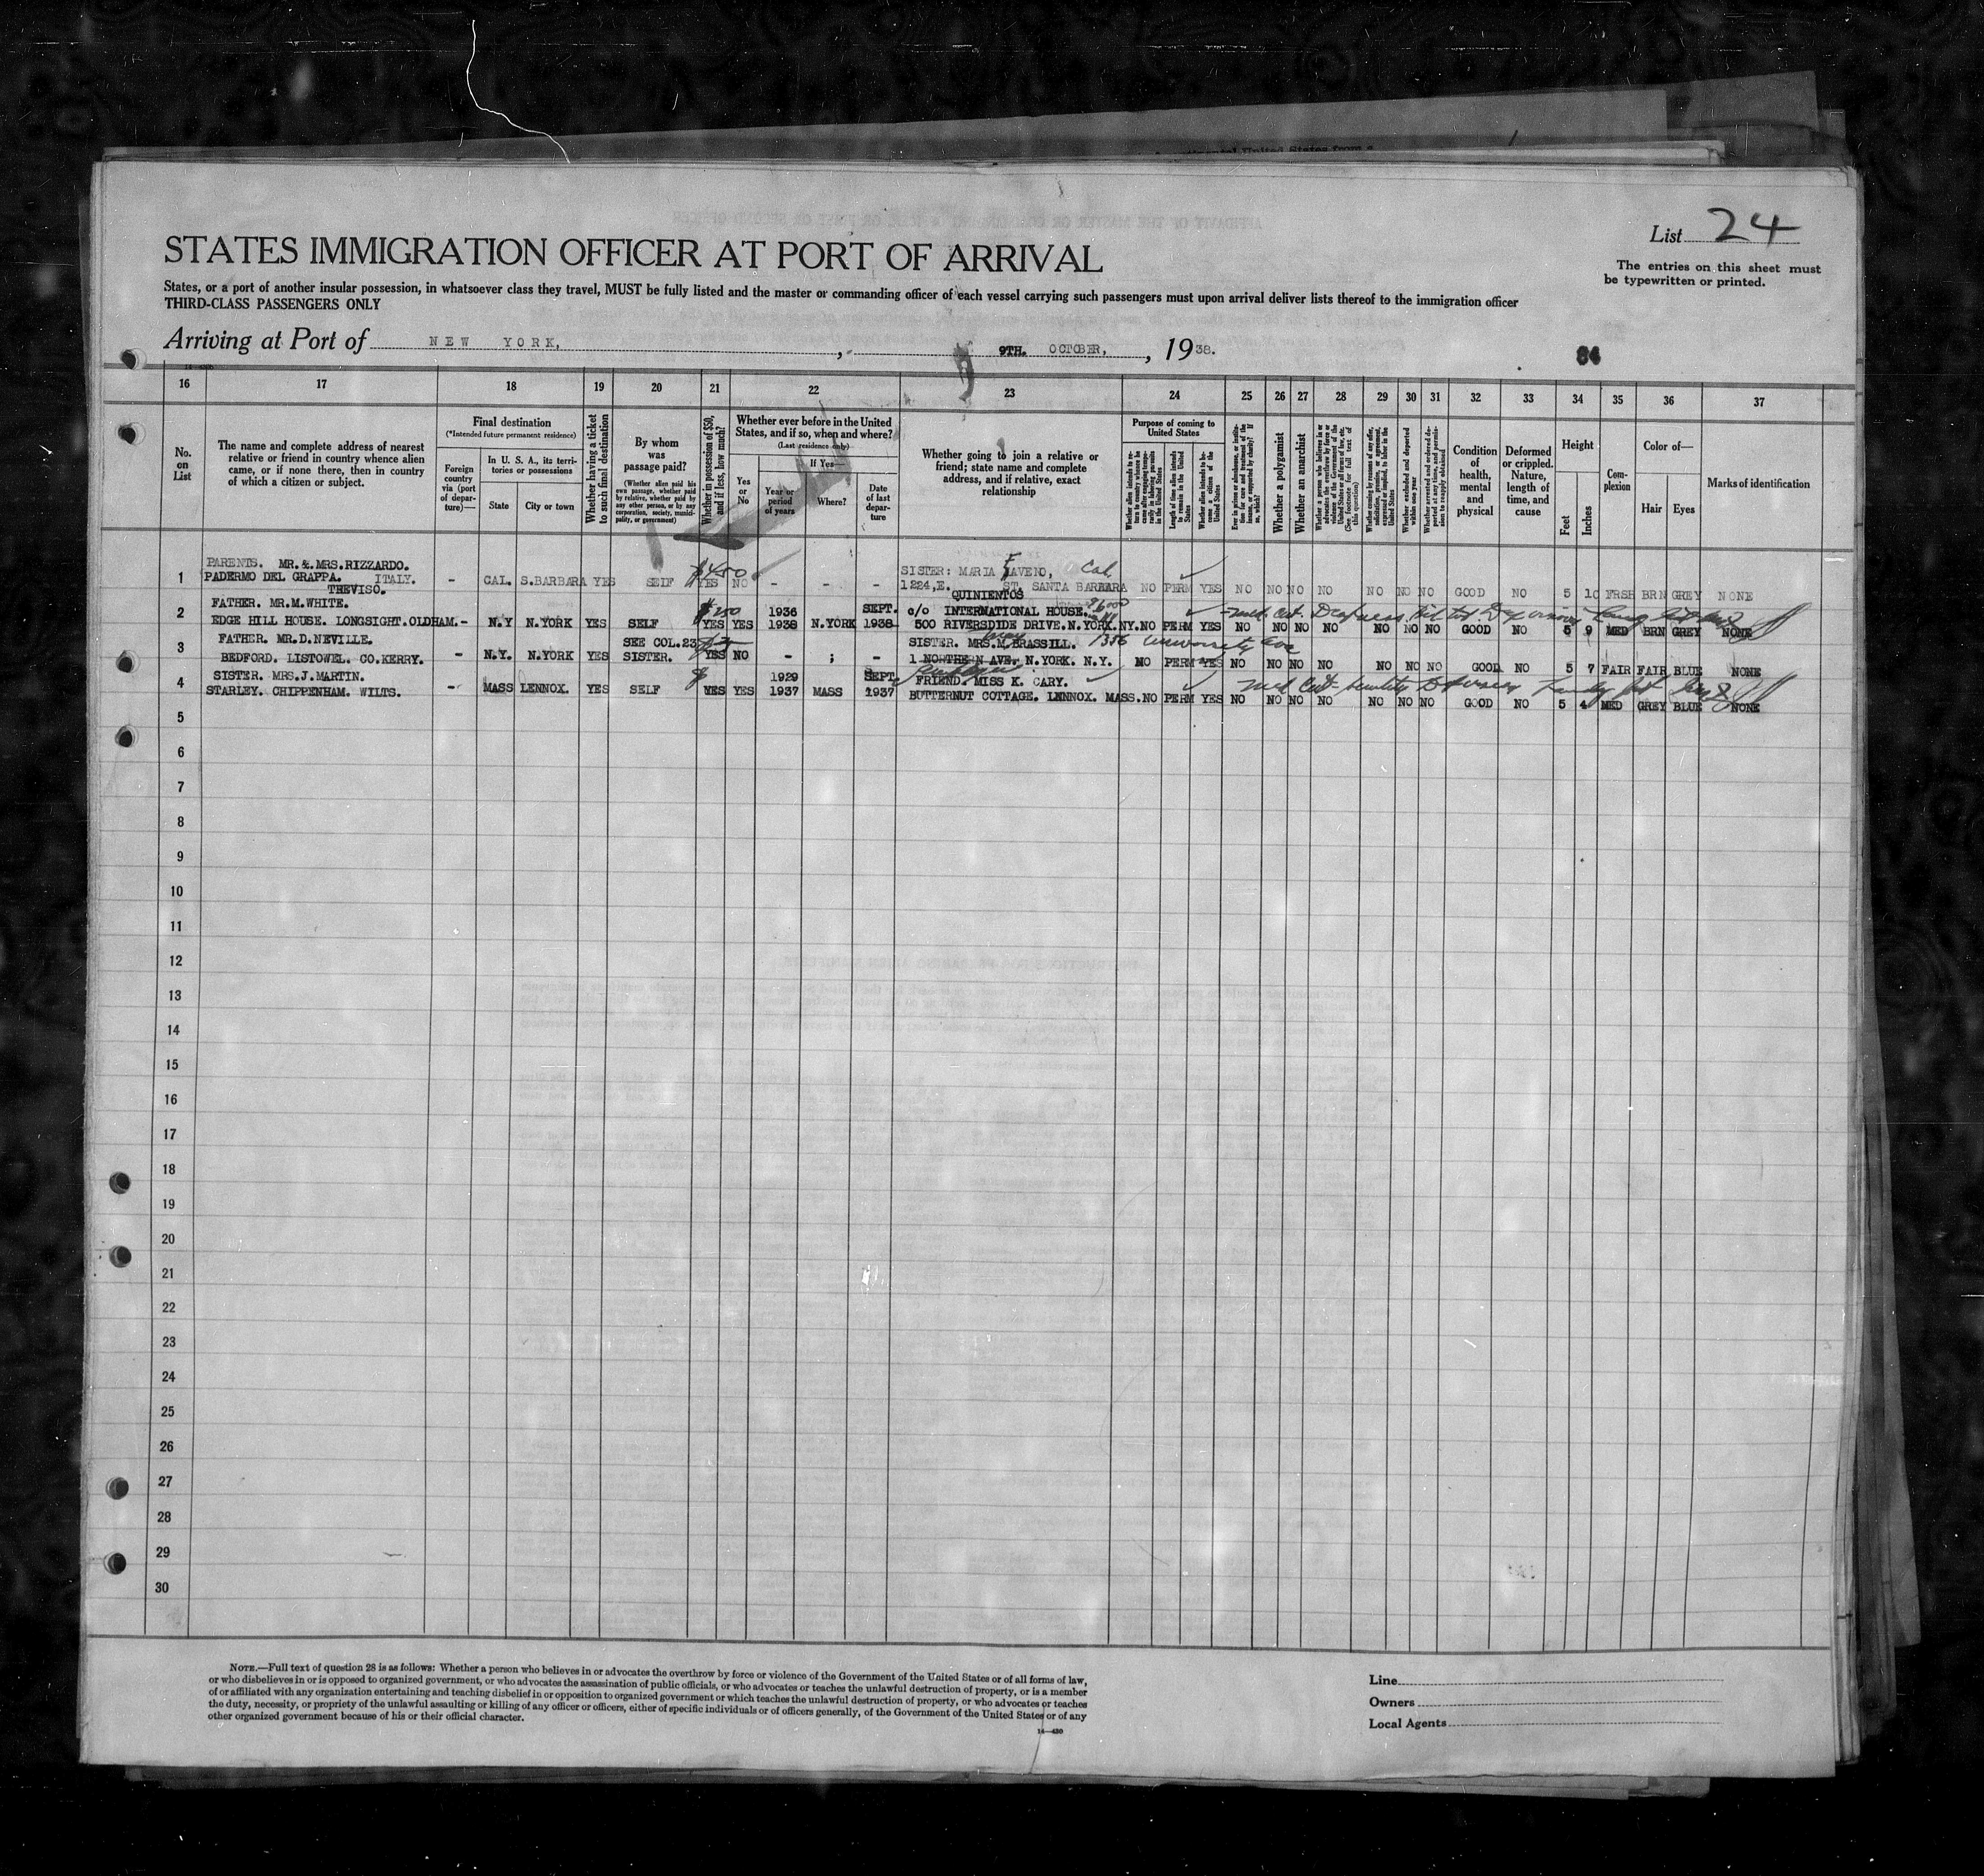 List 24
STATES IMMIGRATION OFFICER AT PORT OF ARRIVAL
The entries on this sheet must
be typewritten or printed.
States, or a port of another insular possession, in whatsoever class they travel, MUST be fully listed and the master or commanding officer of each vessel carrying such passengers must upon arrival deliver lists thereof to the immigration officer
THIRD-CLASS PASSENGERS ONLY
Arriving at Port of NEW YORK, , 9TH. OCTOBER, , 1938.
16 17 18 19 20 21 22 23 24 25 26 27 28 29 30 31 32 33 34 35 36 37
No. on List
The name and complete address of nearest
relative or friend in country whence alien
came, or if none there, then in country
of which a citizen or subject.
Final destination
(*Intended future permanent residence)
Foreign country via (port of departure)—
In U. S. A., its territories or possessions
State
City or town
Whether having a ticket to such final destination
By whom was passage paid?
(Whether alien paid his own passage, whether paid by relative, whether paid by any other person, or by any corporation, society, municipality, or government)
Whether in possession of $50, and if less, how much?
Whether ever before in the United States, and if so, when and where?
(Last residence only)
Yes or No
If Yes—
Year or period of years
Where?
Date of last departure
Whether going to join a relative or
friend; state name and complete
address, and if relative, exact
relationship
Purpose of coming to United States
Length of time alien intends to remain in the United States
Whether a polygamist
Whether an anarchist
Condition of health, mental and physical
Deformed or crippled. Nature, length of time, and cause
Height
Feet
Inches
Complexion
Color of—
Hair
Eyes
Marks of identification
PARENTS. MR.&.MRS.RIZZARDO.
1 PADERMO DEL GRAPPA. ITALY. - CAL. S.BARBARA YES SELF $450 YES NO - - - SISTER: MARIA FAVENO, Cal.
TREVISO.
1224,E. QUINIENTOS ST. SANTA BARBARA NO PERM YES NO NO NO NO NO NO NO GOOD NO 5 10 FRSH BRN GREY NONE
2 FATHER. MR.M.WHITE. $200 1936 SEPT. c/o INTERNATIONAL HOUSE.
EDGE HILL HOUSE. LONGSIGHT.OLDHAM.- N.Y N.YORK YES SELF YES YES 1938 N.YORK 1938 500 RIVERSDIDE DRIVE.N.YORK.NY. NO PERM YES NO NO NO NO NO NO NO GOOD NO 5 9 MED BRN GREY NONE
3 FATHER. MR.D.NEVILLE. SEE COL.23 SISTER. MRS.M.BRASSILL. 1386 University Ave
BEDFORD. LISTOWEL. CO.KERRY. - N.Y. N.YORK YES SISTER. YES NO - ; - 1 NORTHERN AVE. N.YORK. N.Y. NO PERM YES NO NO NO NO NO NO NO GOOD NO 5 7 FAIR FAIR BLUE NONE
4 SISTER. MRS.J.MARTIN. 1929 SEPT. FRIEND. MISS K. CARY.
STARLEY. CHIPPENHAM. WILTS. - MASS LENNOX. YES SELF YES YES 1937 MASS 1937 BUTTERNUT COTTAGE. LNNNOX. MASS. NO PERM YES NO NO NO NO NO NO NO GOOD NO 5 4 MED GREY BLUE NONE
5
6
7
8
9
10
11
12
13
14
15
16
17
18
19
20
21
22
23
24
25
26
27
28
29
30
NOTE.—Full text of question 28 is as follows: Whether a person who believes in or advocates the overthrow by force or violence of the Government of the United States or of all forms of law,
or who disbelieves in or is opposed to organized government, or who advocates the assassination of public officials, or who advocates or teaches the unlawful destruction of property, or is a member
of or affiliated with any organization entertaining and teaching disbelief in or opposition to organized government or which teaches the unlawful destruction of property, or who advocates or teaches
the duty, necessity, or propriety of the unlawful assaulting or killing of any officer or officers, either of specific individuals or of officers generally, of the Government of the United States or of any
other organized government because of his or their official character.
14—430
Line
Owners
Local Agents